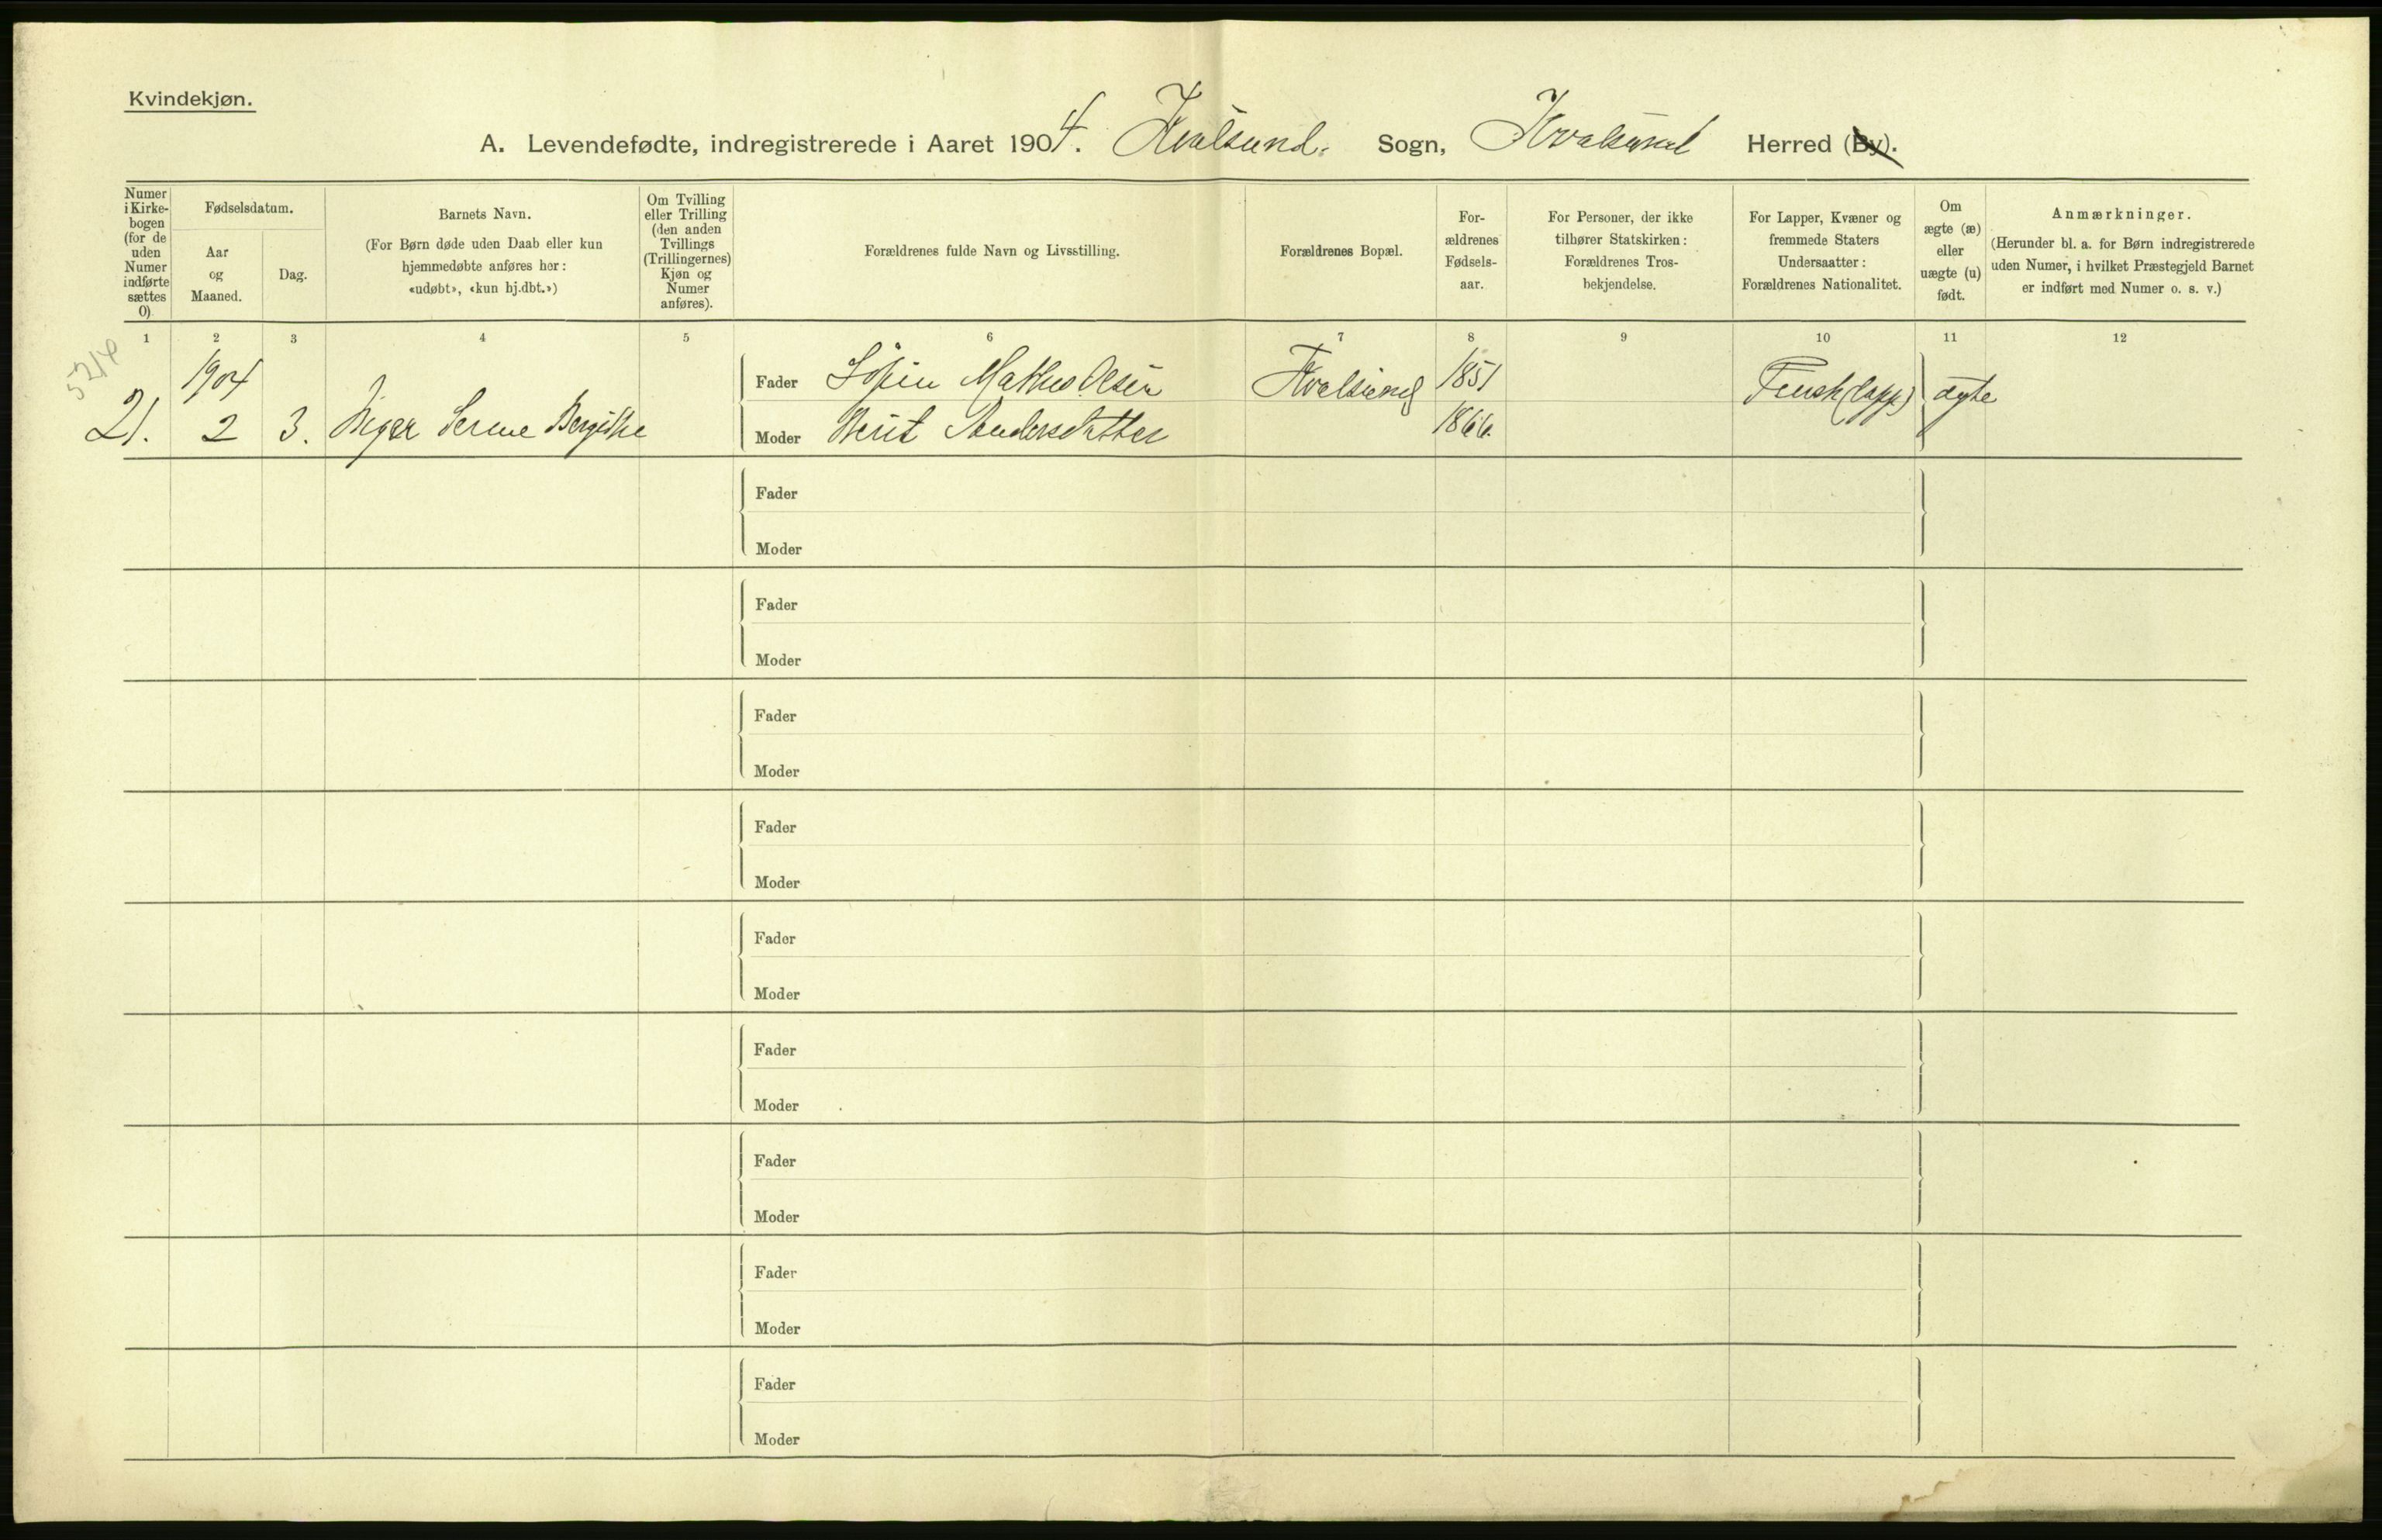 Kvindekjøn.
A. Levendefødte, indregistrerede i Aaret 1904. Kvalsund. Sogn, Kvalsund Herred (By).
Numer i Kirke-bogen (for de uden Numer indførte sættes 0)
Fødselsdatum.
Aar og Maaned.
Dag.
Barnets Navn.
(For Børn døde uden Daab eller kun
hjemmedøbte anføres her:
«udøbt», «kun hj.dbt.»)
Om Tvilling
eller Trilling
(den anden
Tvillings
(Trillingernes)
Kjøn og
Numer
anføres).
Forældrenes fulde Navn og Livsstilling.
Forældrenes Bopæl.
For-
ældrenes
Fødsels-
aar.
For Personer, der ikke
tilhører Statskirken:
Forældrenes Tros-
bekjendelse.
For Lapper, Kvæner og
fremmede Staters
Undersaatter:
Forældrenes Nationalitet.
Om
ægte (æ)
eller
uægte (u)
født.
Anmærkninger.
(Herunder bl. a. for Børn indregistrerede
uden Numer, i hvilket Præstegjeld Barnet
er indført med Numer o. s. v.)
1 2 3 4 5 6 7 8 9 10 11 12
5214
1904 Fader Mathis Olsen Kvalsund 1851 (lapp) ægte
21. 2 3. Inger Serine Moder Berit Andersdatter 1866.
Fader
Moder
Fader
Moder
Fader
Moder
Fader
Moder
Fader
Moder
Fader
Moder
Fader
Moder
Fader
Moder
Fader
Moder